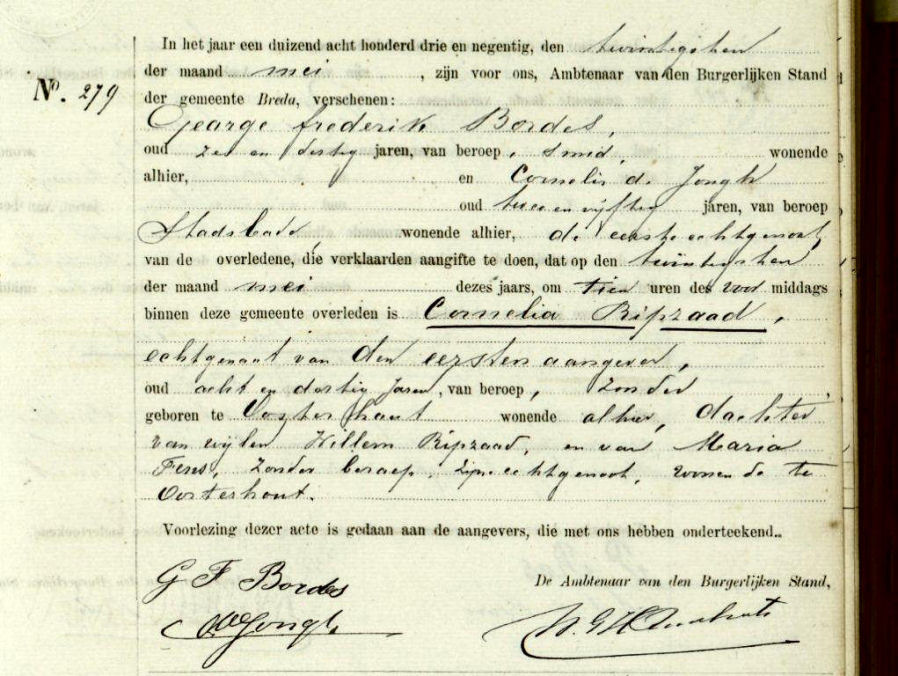 In het jaar een duizend acht honderd drie en negentig, den twintigsten
der maand mei, zijn voor ons, Ambtenaar van den Burgerlijken Stand
No. 279
der gemeente Breda, verschenen:
George frederik Bordes,
oud zes en dertig jaren, van beroep, smid, wonende
alhier, en Cornelis de Jongh
oud twee en vijftig jaren, van beroep
Stadsbode wonende alhier, de eerste echtgenoot
van de overledene, die verklaarden aangifte te doen, dat op den twintigsten
der maand mei dezes jaars, om tien uren des voor middags
binnen deze gemeente overleden is Cornelia Ripzaad,
echtgenoot van den eersten aangever,
oud acht en dertig Jaren, van beroep, zonder
geboren te Oosterhout wonende alhier, dochter
van wijlen Willem Ripzaad, en van Maria
Fens, zonder beroep, zijne echtgenoot, wonende te
Oosterhout.
Voorlezing dezer acte is gedaan aan de aangevers, die met ons hebben onderteekend..
G F Bordes
De Ambtenaar van den Burgerlijken Stand,
de Jongh